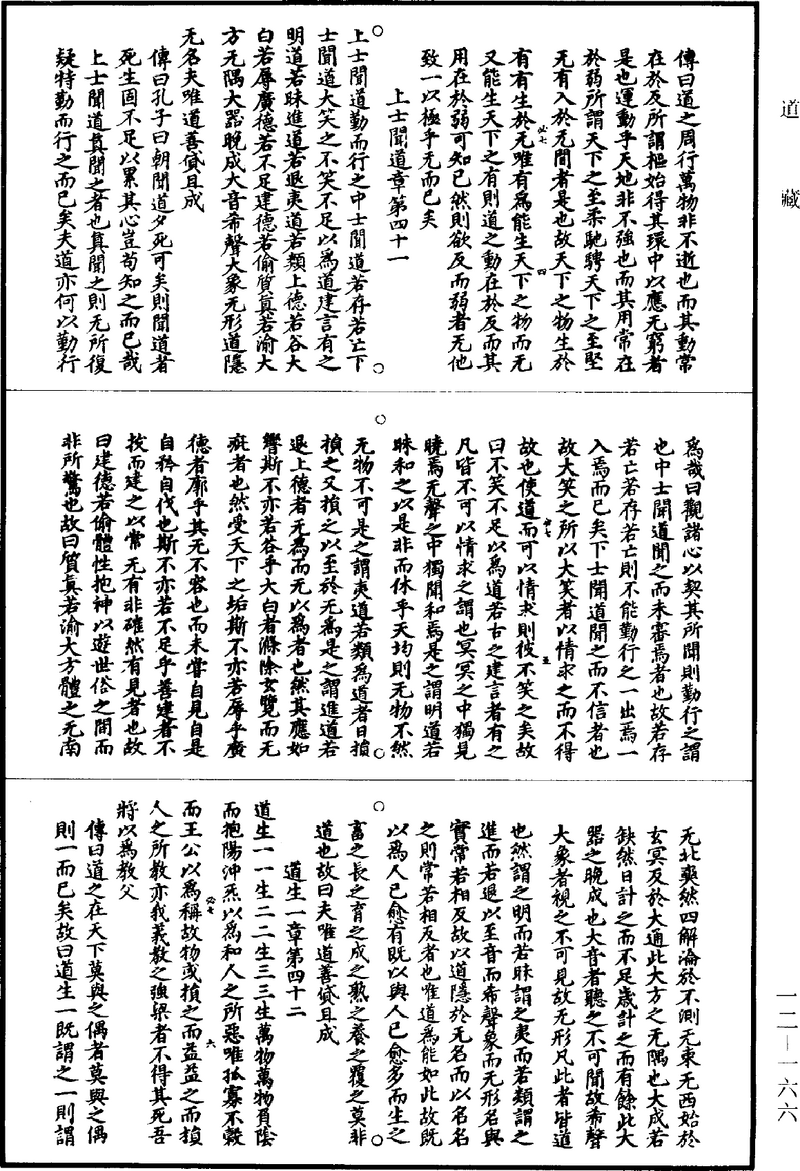 道藏
傳曰道之周行萬物非不逝也而其動常
在於反所謂樞始得其環中以應无窮者
是也運動乎天地非不強也而其用常在
於弱所謂天下之至柔馳騁天下之至堅
无有入於无間者是也故天下之物生於
有有生於无唯有爲能生天下之物而无
又能生天下之有則道之動在於反而其
用在於弱可知已然則欲反而弱者无他
致一以極乎无而已矣
上士聞道章第四十一
上士聞道勤而行之中士聞道若存若亡下
士聞道大笑之不笑不足以爲道建言有之
明道若昧進道若退夷道若類上德若谷大
白若辱廣德若不足建德若偷質真若渝大
方无隅大器晚成大音希聲大象无形道隱
无名夫唯道善貸且成
傳曰孔子曰朝聞道夕死可矣則聞道者
死生固不足以累其心豈苟知之而已哉
上士聞道真聞之者也真聞之則无所復
疑特勤而行之而已矣夫道亦何以勤行
爲哉曰觀諸心以契其所聞則勤行之謂
也中士聞道聞之而未審焉者也故若存
若亡若存若亡則不能勤行之一出焉一
入焉而已矣下士聞道聞之而不信者也
故大笑之所以大笑者以情求之而不得
故也使道而可以情求則彼不笑之矣故
曰不笑不足以爲道若古之建言者有之
凡皆不可以情求之謂也冥冥之中獨見
曉焉无聲之中獨聞和焉是之謂明道若
昧和之以是非而休乎天均則无物不然
无物不可是之謂夷道若類爲道者日損
損之又損之以至於无爲是之謂進道若
退上德者无爲而无以爲者也然其應如
響斯不亦若谷乎大白者滌除玄覽而无
疵者也然受天下之垢斯不亦若辱乎廣
德者廓乎其无不容也而未嘗自見自是
自矜自伐也斯不亦若不足乎善建者不
拔而建之以常无有非確然有見者也故
曰建德若偷體性抱神以遊世俗之間而
非所驚也故曰質真若渝大方體之无南
无北奭然四解淪於不測无東无西始於
玄冥反於大通此大方之无隅也大成若
缺然日計之而不足歲計之而有餘此大
器之晚成也大音者聽之不可聞故希聲
大象者視之不可見故无形凡此者皆道
也然謂之明而若昧謂之夷而若類謂之
進而若退以至音而希聲象而无形名與
實常若相反故以道隱於无名而以名名
之則常若相反者也唯道爲能如此故既
以爲人已愈有既以與人已愈多而生之
畜之長之育之成之熟之養之覆之莫非
道也故曰夫唯道善貸且成
道生一章第四十二
道生一一生二二生三三生萬物萬物負陰
而抱陽沖炁以爲和人之所惡唯孤寡不穀
而王公以爲稱故物或損之而益益之而損
人之所教亦我義教之強梁者不得其死吾
將以爲教父
傳曰道之在天下莫與之偶者莫與之偶
則一而已矣故曰道生一既謂之一則謂
一二—一六六